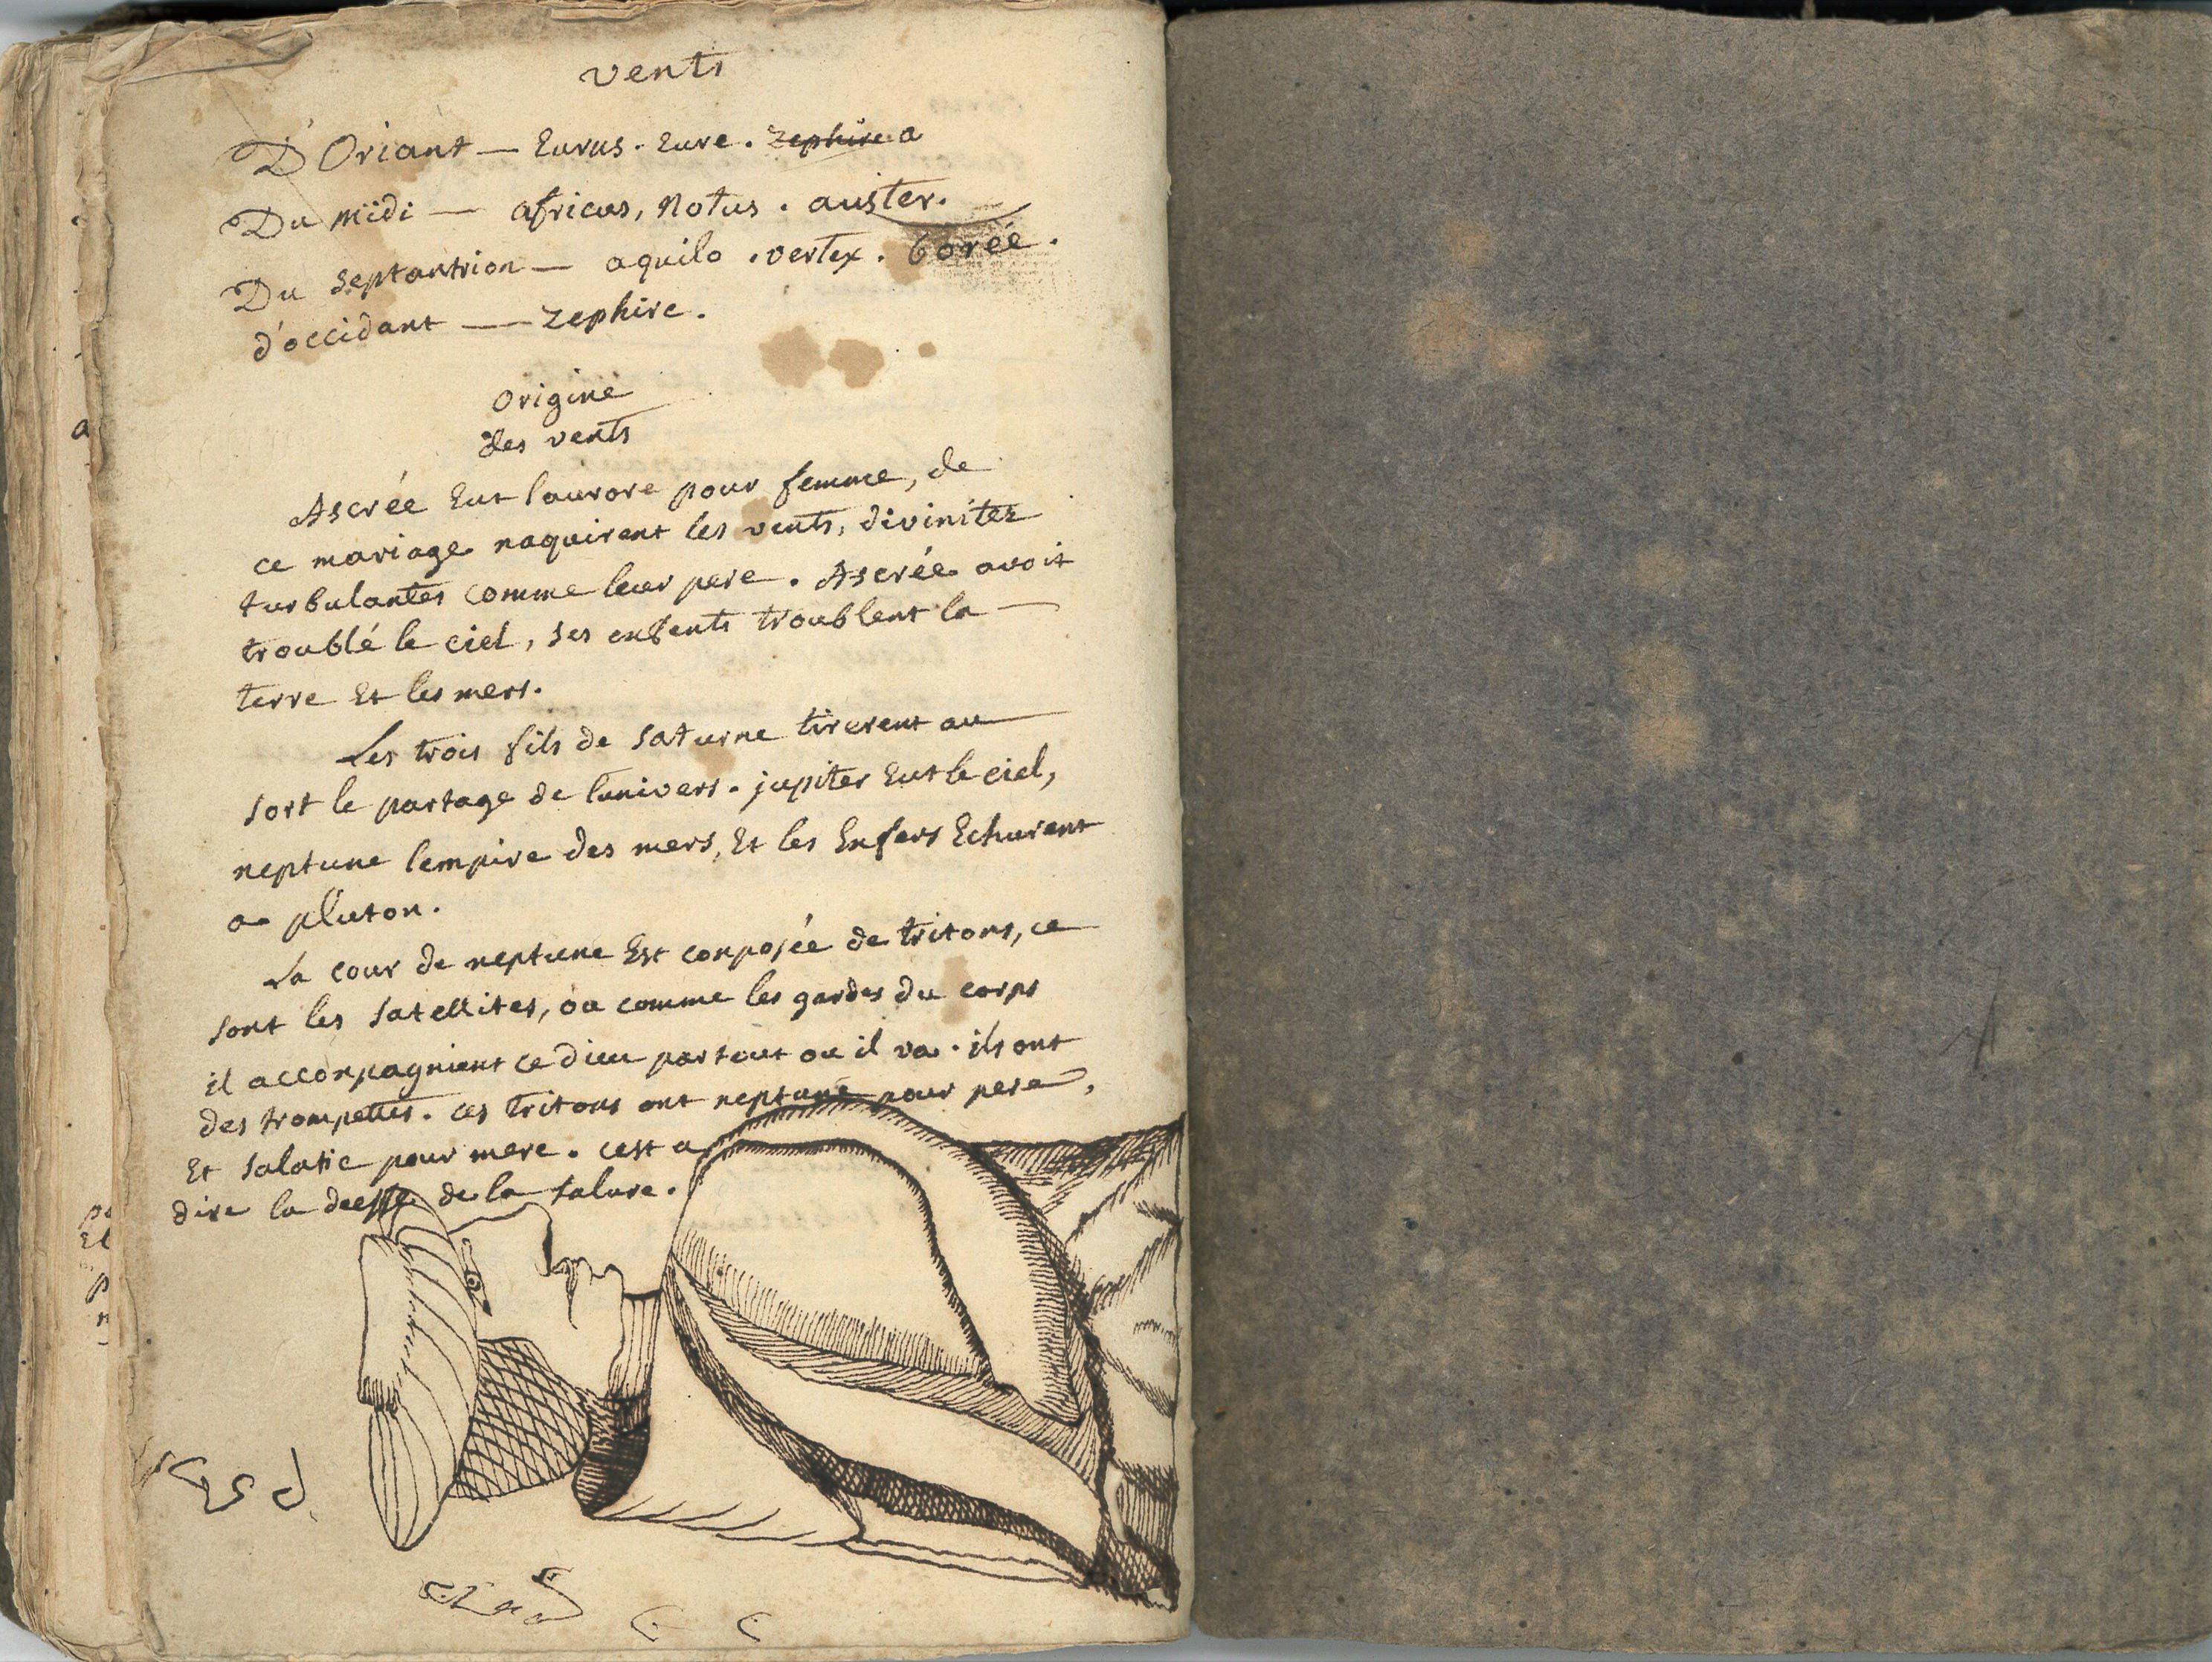 vents
D'Oriant — Eurus. Eure. Zephire a
Du midi — africus, Notus. auster.
Du septantrion — aquilo. vertex. borée.
d'occidant — zephire.
origine
des vents
Ascrée Eut l'aurore pour femme, de
ce mariage naquirent les vents, divinitez
turbulantes comme leur pere. Ascrée avoit
troublé le ciel, ses enfents troublent la
terre Et les mers.
Les trois fils de saturne tirerent au
sort le partage de lunivers. jupiter Eut le ciel,
neptune lempire des mers, Et les Enfers Echurent
a pluton.
La cour de neptune Est conposée de tritons, ce
sont les satellites, ou comme les gardes du corps
il acconpagnient ce dieu partout ou il va. ils ont
des trompettes. ces tritons ont neptune pour pere,
Et salatie pour mere. cest a
dire la deesse de la salure.